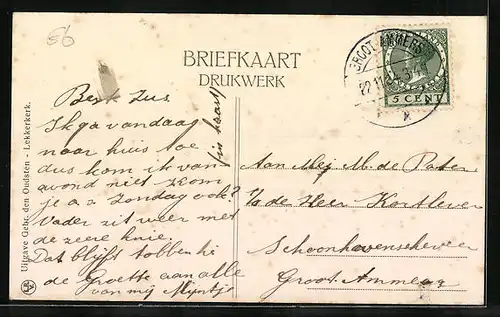 56
BRIEFKAART
DRUKWERK
GROOT-AMMERS
5 CENT
Uitgave Gebr. den Oudsten - Lekkerkerk.
Best Zus
Ik ga vandaag
naar huis toe
dus kom ik van
avond niet. Kom
je a.s. Zondag ook?
Vader zit weer met
de zeere knie.
Dat blijft tobben hè
de Groetjes aan alle
van mij Mijntje
(in haast)
Aan Mej. M. de Pater
p/a de Heer Kortlever
Schoonhovenseveer
Groot-Ammers